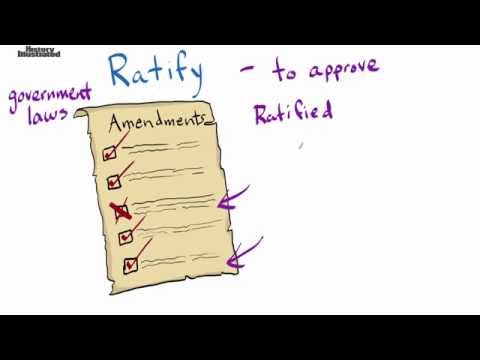 History
Illustrated
Ratify - to approve
government
laws
Amendments
Ratified